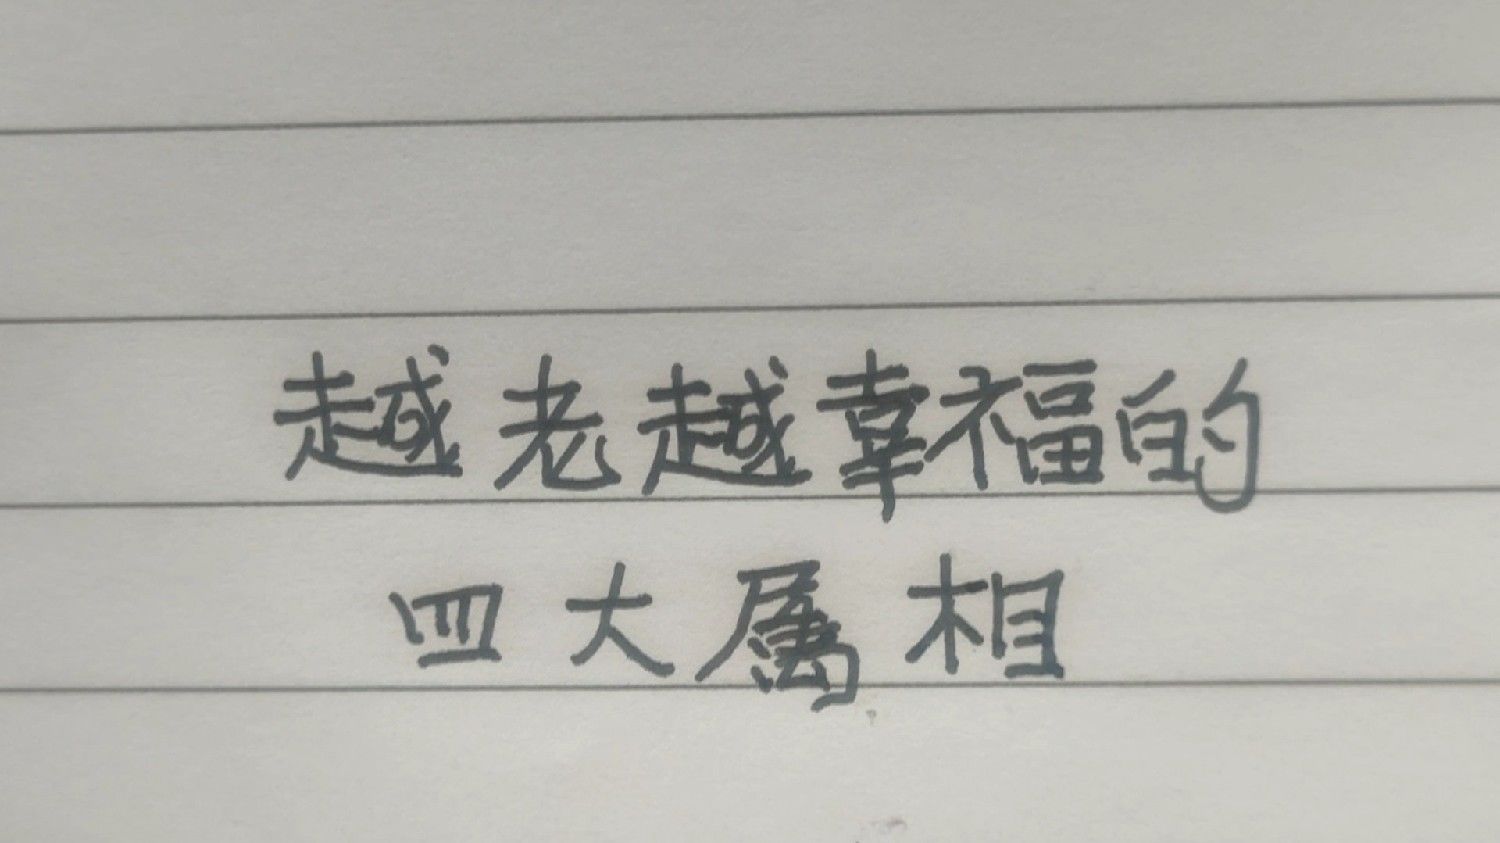 越老越幸福的
四大属相